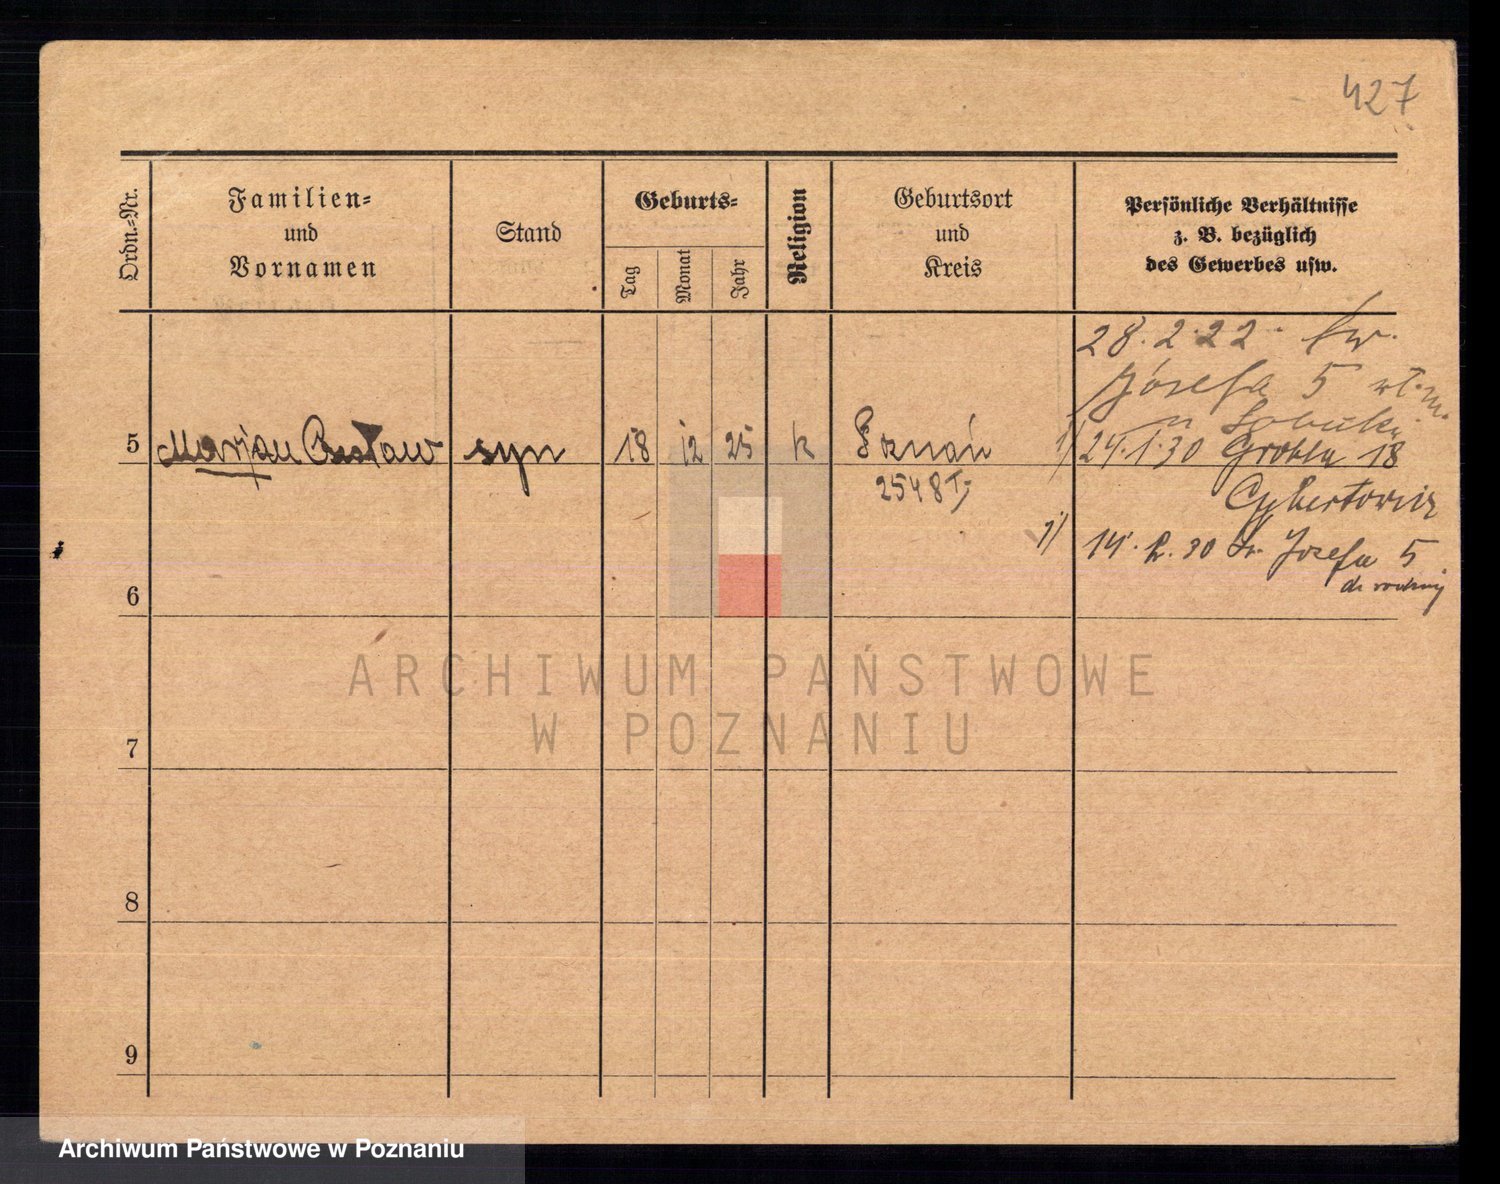 427
Ordn.-Nr.
Familien-
und
Vornamen
Stand
Geburts-
Tag
Monat
Jahr
Religion
Geburtsort
und
Kreis
Persönliche Verhältnisse
z. B. bezüglich
des Gewerbes usw.
28.2.22. św.
Józefa 5
5 Marjan syn 18 12 25 k Poznań
1) 24.1.30 Grobla 18
2548
1) 14. 30 Józefa 5
6
ARCHIWUM PAŃSTWOWE
W POZNANIU
7
8
9
Archiwum Państwowe w Poznaniu